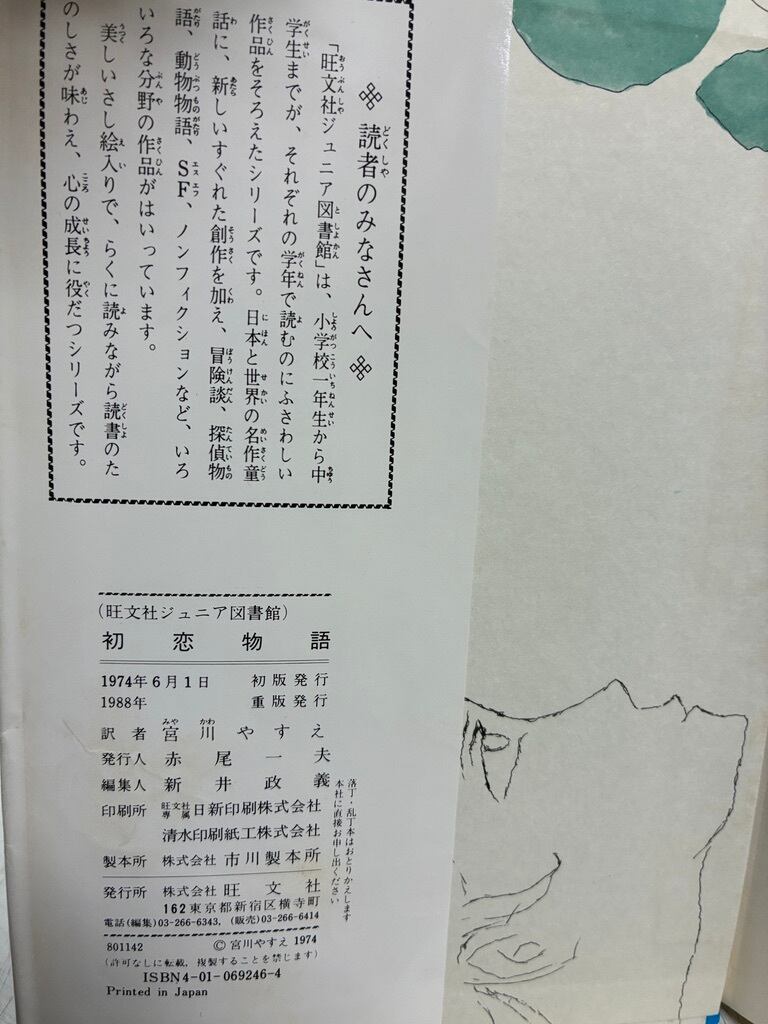 読者のみなさんへ
「旺文社ジュニア図書館」は、小学校一年生から中
学生までが、それぞれの学年で読むのにふさわしい
作品をそろえたシリーズです。日本と世界の名作童
話に、新しいすぐれた創作を加え、冒険談、探偵物
語、動物物語、SF、ノンフィクションなど、いろ
いろな分野の作品がはいっています。
美しいさし絵入りで、らくに読みながら読書のた
のしさが味わえ、心の成長に役だつシリーズです。
(旺文社ジュニア図書館)
初恋物語
1974年6月1日 初版発行
1988年 重版発行
訳者 宮川やすえ
発行人 赤尾一夫
編集人 新井政義
印刷所 旺文社専属 日新印刷株式会社
清水印刷紙工株式会社
製本所 株式会社 市川製本所
発行所 株式会社 旺文社
162 東京都新宿区横寺町
電話(編集)03-266-6343, (販売)03-266-6414
801142 © 宮川やすえ 1974
(許可なしに転載, 複製することを禁じます)
ISBN4-01-069246-4
Printed in Japan
落丁・乱丁本はおとりかえします
本社に直接お申し出ください